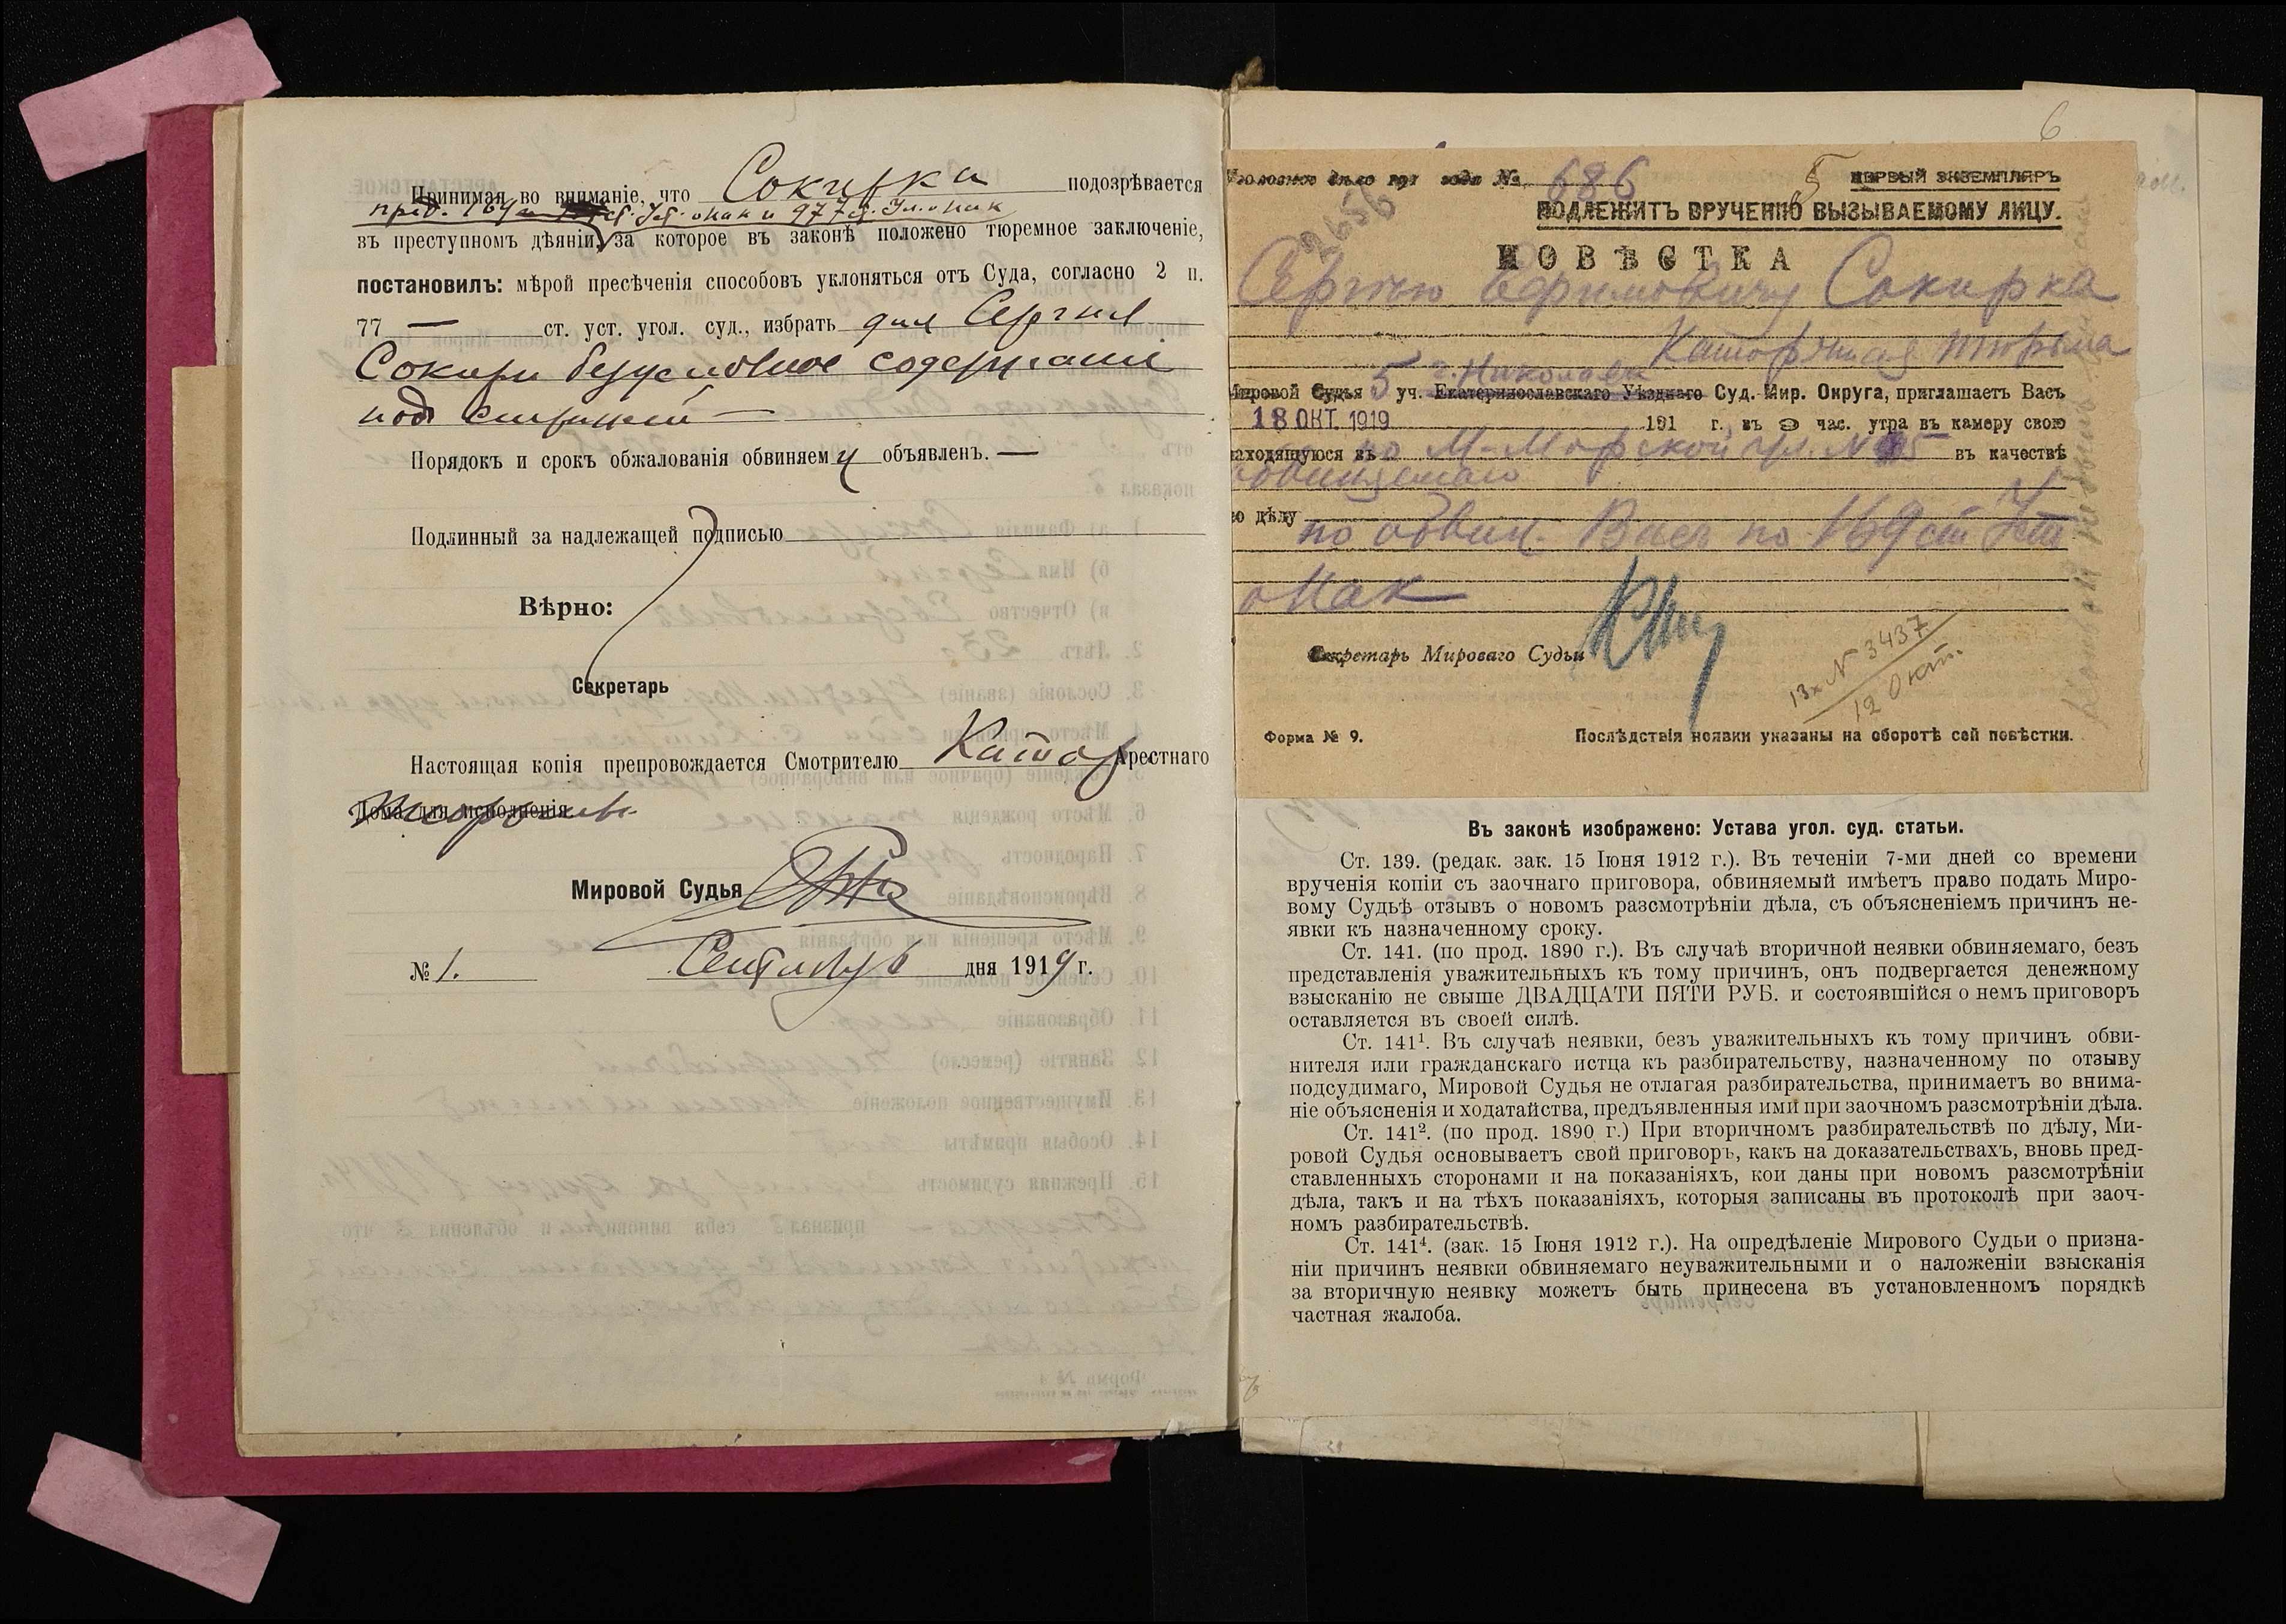 Принимая во вниманіе, что Сокирка подозрѣвается
пред. 169 ст. Уст. о Нак и 977 ст. Ул. о Нак
въ преступномъ дѣяніи, за которое въ законѣ положено тюремное заключеніе,
постановилъ: мѣрой пресѣченія способовъ уклоняться отъ Суда, согласно 2 п.
77 — ст. уст. угол. суд., избрать для Сергія
Сокири безусловное содержаніе
под стражей —
Порядокъ и срокъ обжалованія обвиняему объявленъ. —
Подлинный за надлежащей подписью
Вѣрно:
Секретарь
Настоящая копія препровождается Смотрителю Катор. Арестнаго
Дома для исполненія
Мировой Судья
№ 1. Сентября дня 1919 г.
6
Уголовное дѣло 191 года № 686 5 ПЕРВЫЙ ЭКЗЕМПЛЯРЪ
2656
ПОДЛЕЖИТЪ ВРУЧЕНІЮ ВЫЗЫВАЕМОМУ ЛИЦУ.
ПОВѢСТКА
Сергѣю Ефимовичу Сокирка
Каторжная тюрьма
г. Николаева
Мировой Судья 5 уч. Екатеринославскаго Уѣзднаго Суд. Мир. Округа, приглашаетъ Васъ
18 ОКТ. 1919 191 г. въ 9 час. утра въ камеру свою
находящуюся въ по М-Морской ул. № 5 въ качествѣ
обвиняемаго
по дѣлу
по обвин. Васъ по 169 ст Уст
о Нак
Секретарь Мироваго Судьи
13х N 3437
12 Окт.
Форма № 9. Послѣдствія неявки указаны на оборотѣ сей повѣстки.
Въ законѣ изображено: Устава угол. суд. статьи.
Ст. 139. (редак. зак. 15 Іюня 1912 г.). Въ теченіи 7-ми дней со времени
врученія копіи съ заочнаго приговора, обвиняемый имѣетъ право подать Миро-
вому Судьѣ отзывъ о новомъ разсмотрѣніи дѣла, съ объясненіемъ причинъ не-
явки къ назначенному сроку.
Ст. 141. (по прод. 1890 г.). Въ случаѣ вторичной неявки обвиняемаго, безъ
представленія уважительныхъ къ тому причинъ, онъ подвергается денежному
взысканію не свыше ДВАДЦАТИ ПЯТИ РУБ. и состоявшійся о немъ приговоръ
оставляется въ своей силѣ.
Ст. 141¹. Въ случаѣ неявки, безъ уважительныхъ къ тому причинъ обви-
нителя или гражданскаго истца къ разбирательству, назначенному по отзыву
подсудимаго, Мировой Судья не отлагая разбирательства, принимаетъ во внима-
ніе объясненія и ходатайства, предъявленныя ими при заочномъ разсмотрѣніи дѣла.
Ст. 141². (по прод. 1890 г.) При вторичномъ разбирательствѣ по дѣлу, Ми-
ровой Судья основываетъ свой приговоръ, какъ на доказательствахъ, вновь пред-
ставленныхъ сторонами и на показаніяхъ, кои даны при новомъ разсмотрѣніи
дѣла, такъ и на тѣхъ показаніяхъ, которыя записаны въ протоколѣ при заоч-
номъ разбирательствѣ.
Ст. 141⁴. (зак. 15 Іюня 1912 г.). На опредѣленіе Мирового Судьи о призна-
ніи причинъ неявки обвиняемаго неуважительными и о наложеніи взысканія
за вторичную неявку можетъ быть принесена въ установленномъ порядкѣ
частная жалоба.